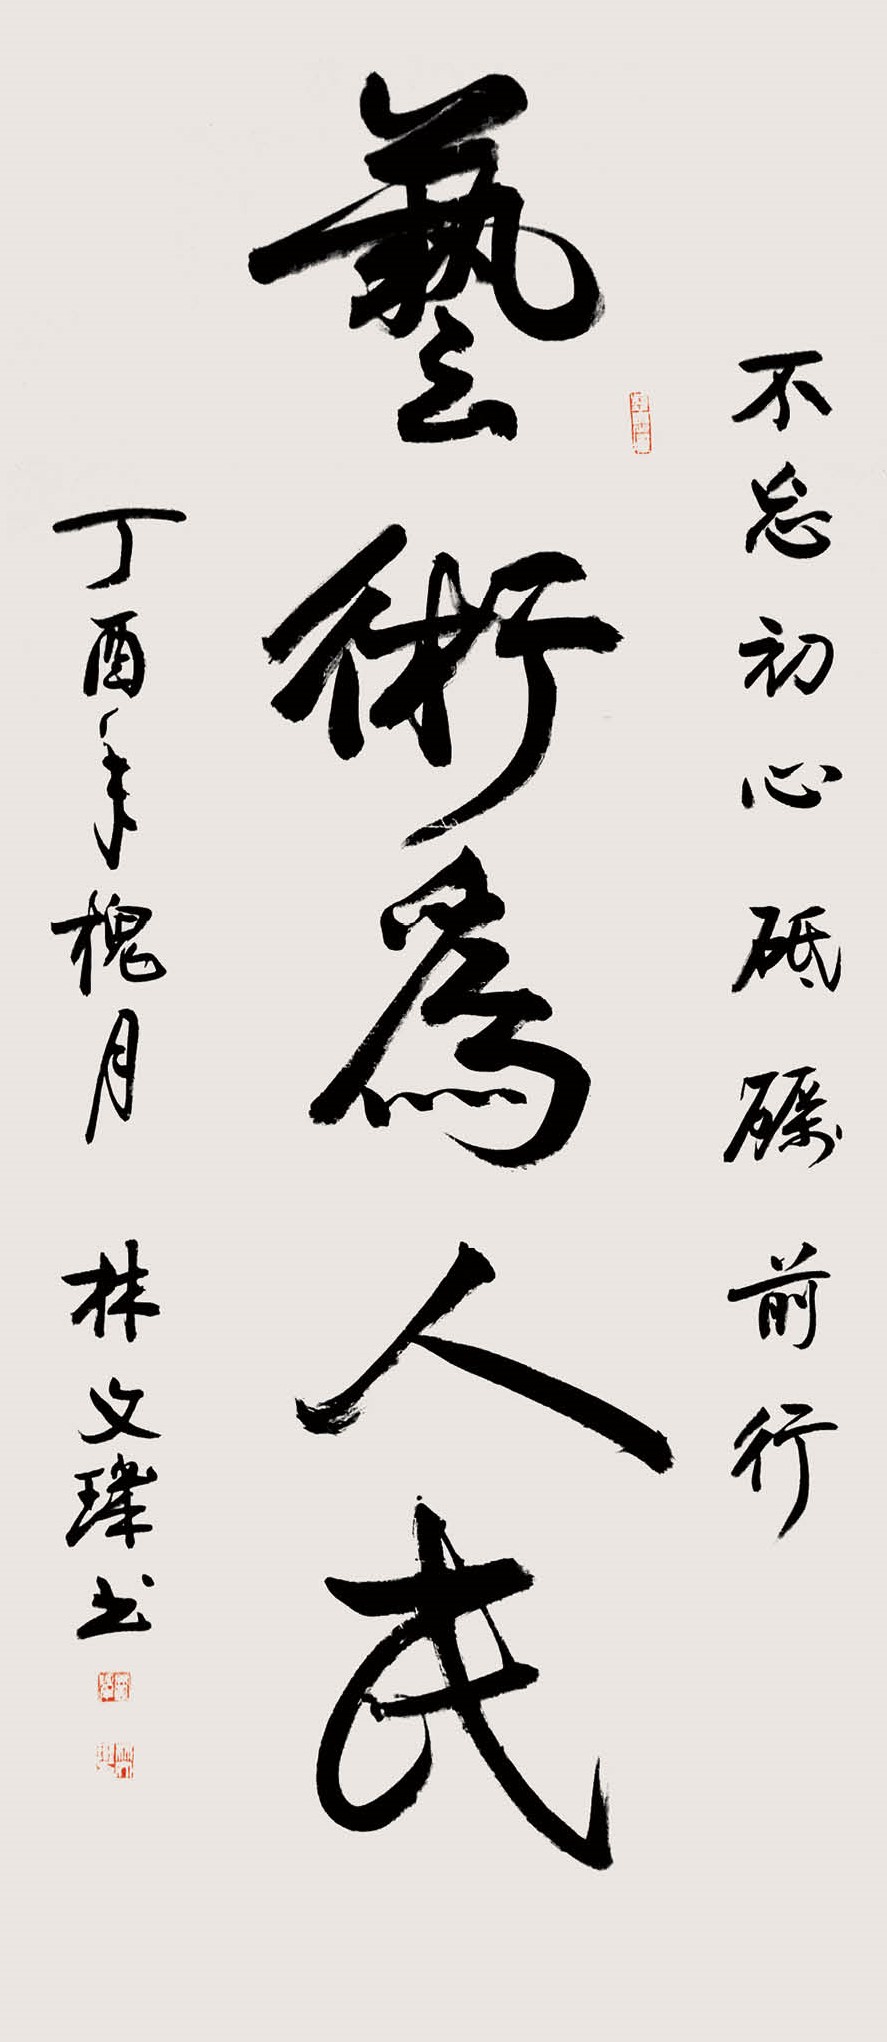 不忘初心砥礪前行
藝術為人民
丁酉年槐月 林文璞书